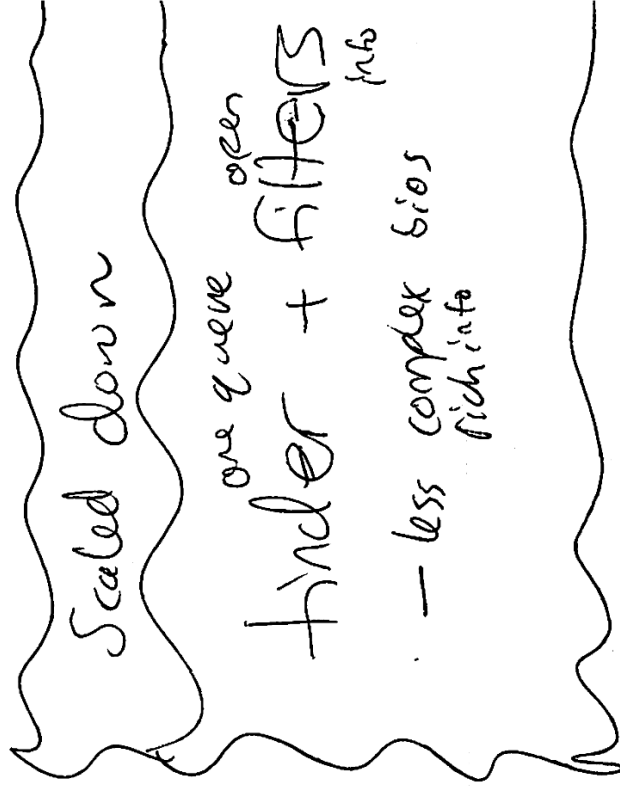 Scaled down
one queue open
tinder + filters
info
- less complex bios
rich info